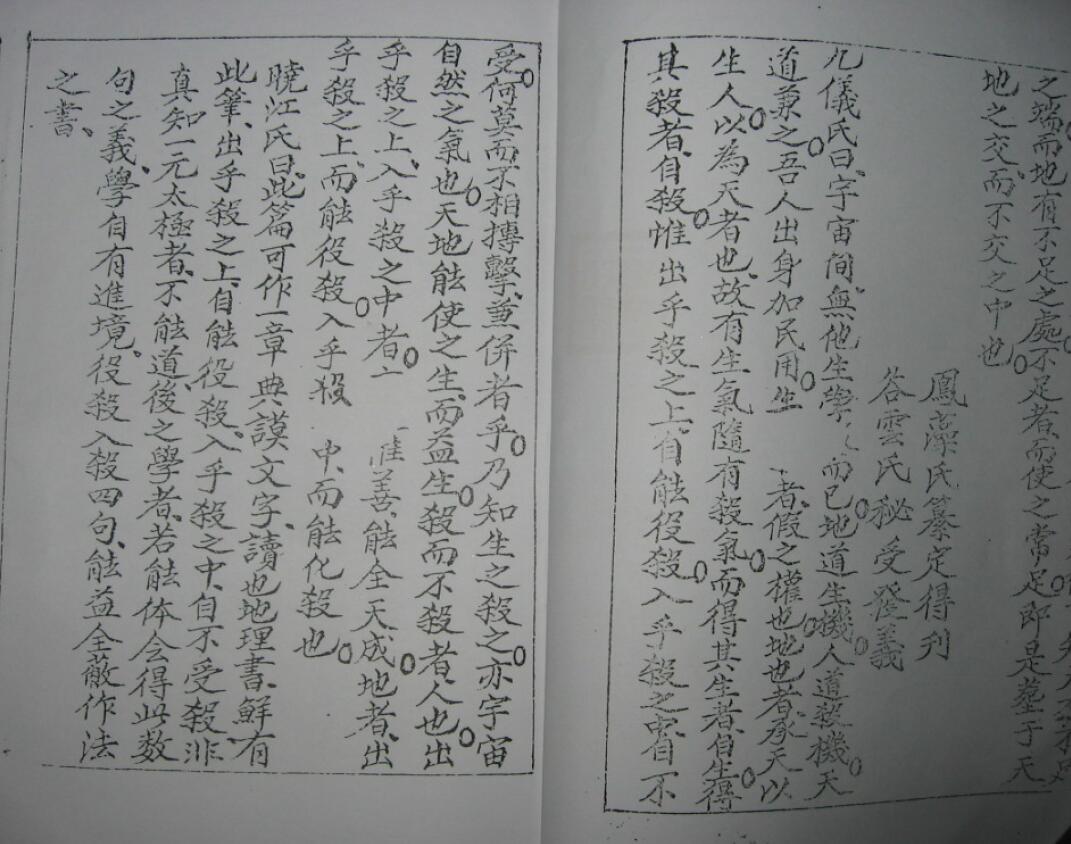 之端而地有不足之處不足者而使之常足即是塟于天
地之交、而不交之中也
鳳潔氏纂定得刋
荅雲氏秘受發義
九儀氏曰、宇宙間、無他生學 而已地道生機人道殺機天
道兼之吾人出身加民用生 者、假之權也地也者承天以
生人以為天者也、故有生氣隨有殺氣而得其生者、自生得
其殺者、自殺惟出乎殺之上、自能役殺入乎殺之 自不
受何莫而不相搏擊、兼併者乎乃知生之殺之亦宇宙
自然之氣也天地能使之生、而益生殺而不殺者、人也出
乎殺之上、入乎殺之中者 惟善、能全天成地者、出
乎殺之上、而能役殺入乎殺 中、而能化殺也
曉江氏曰、此篇可作一章典謨文字、讀也地理書、鮮有
此筆、出乎殺之上、自能役殺、入乎殺之中、自不受殺、非
真知一元太極者、不能道、後之學者、若能体会得此数
句之義、學自有進境、役殺入殺四句、能益全蔽作法
之書、